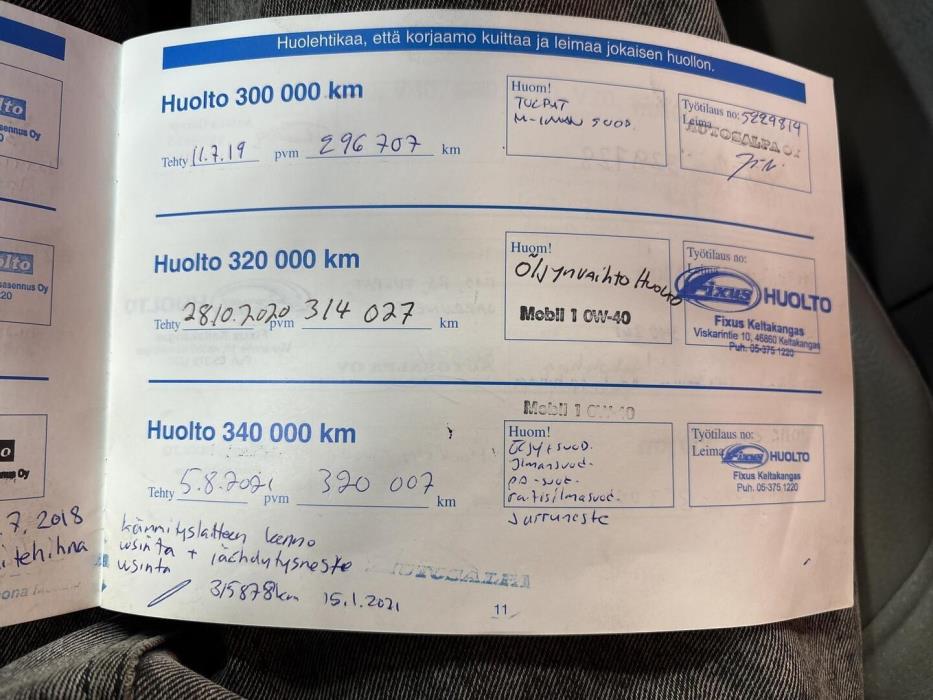 Huolehtikaa, että korjaamo kuittaa ja leimaa jokaisen huollon.
Huolto 300 000 km
Tehty 11.7.19 pvm 296 707 km
Huom!
TULPAT
M-ILMAN SUOD
Työtilaus no: 5229814
Leima
AUTOSALPA OY
Huolto 320 000 km
Tehty 28.10.2020 pvm 314 027 km
Huom!
Öljynvaihto Huolto
Mobil 1 0W-40
Työtilaus no:
Leima
Fixus HUOLTO
Fixus Keltakangas
Viskarintie 10, 46860 Keltakangas
Puh. 05-375 1220
Huolto 340 000 km
Tehty 5.8.2021 pvm 320 007 km
Mobil 1 0W-40
Huom!
Öljy+suod.
Ilmansuod.
pa-suod.
raitisilmasuod.
Jarruneste
Työtilaus no:
Leima
Fixus HUOLTO
Fixus Keltakangas
Puh. 05-375 1220
usinta + jäähdytysneste
usinta
315878km 15.1.2021
11
lto
asennus Oy
olto
asennus Oy
220
o
Oy
.7.2018